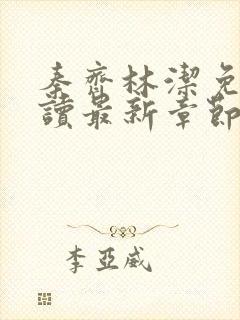 秦齊林潔免
讀最新章節
李亞威